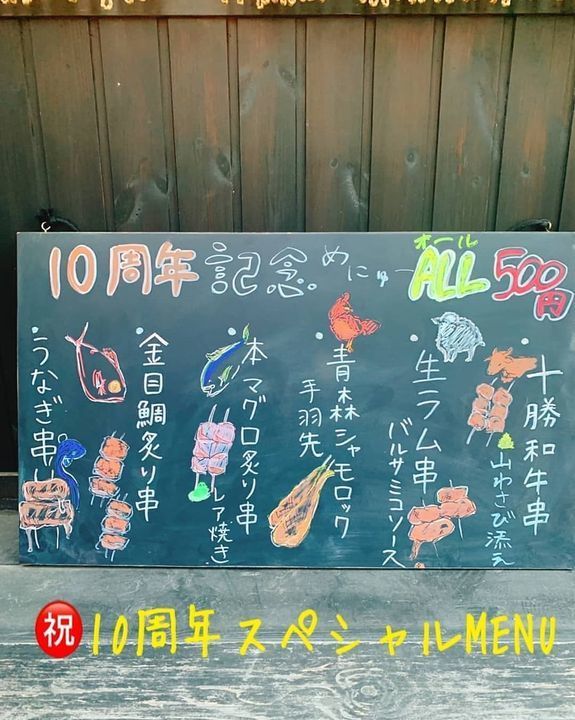 10周年記念めにゅー
オール
ALL 500円
・十勝和牛串
山わさび添え
・生ラム串
バルサミコソース
・青森シャモロック
手羽先
・本マグロ炙り串
レア焼き
・金目鯛炙り串
・うなぎ串
㊗10周年スペシャルMENU